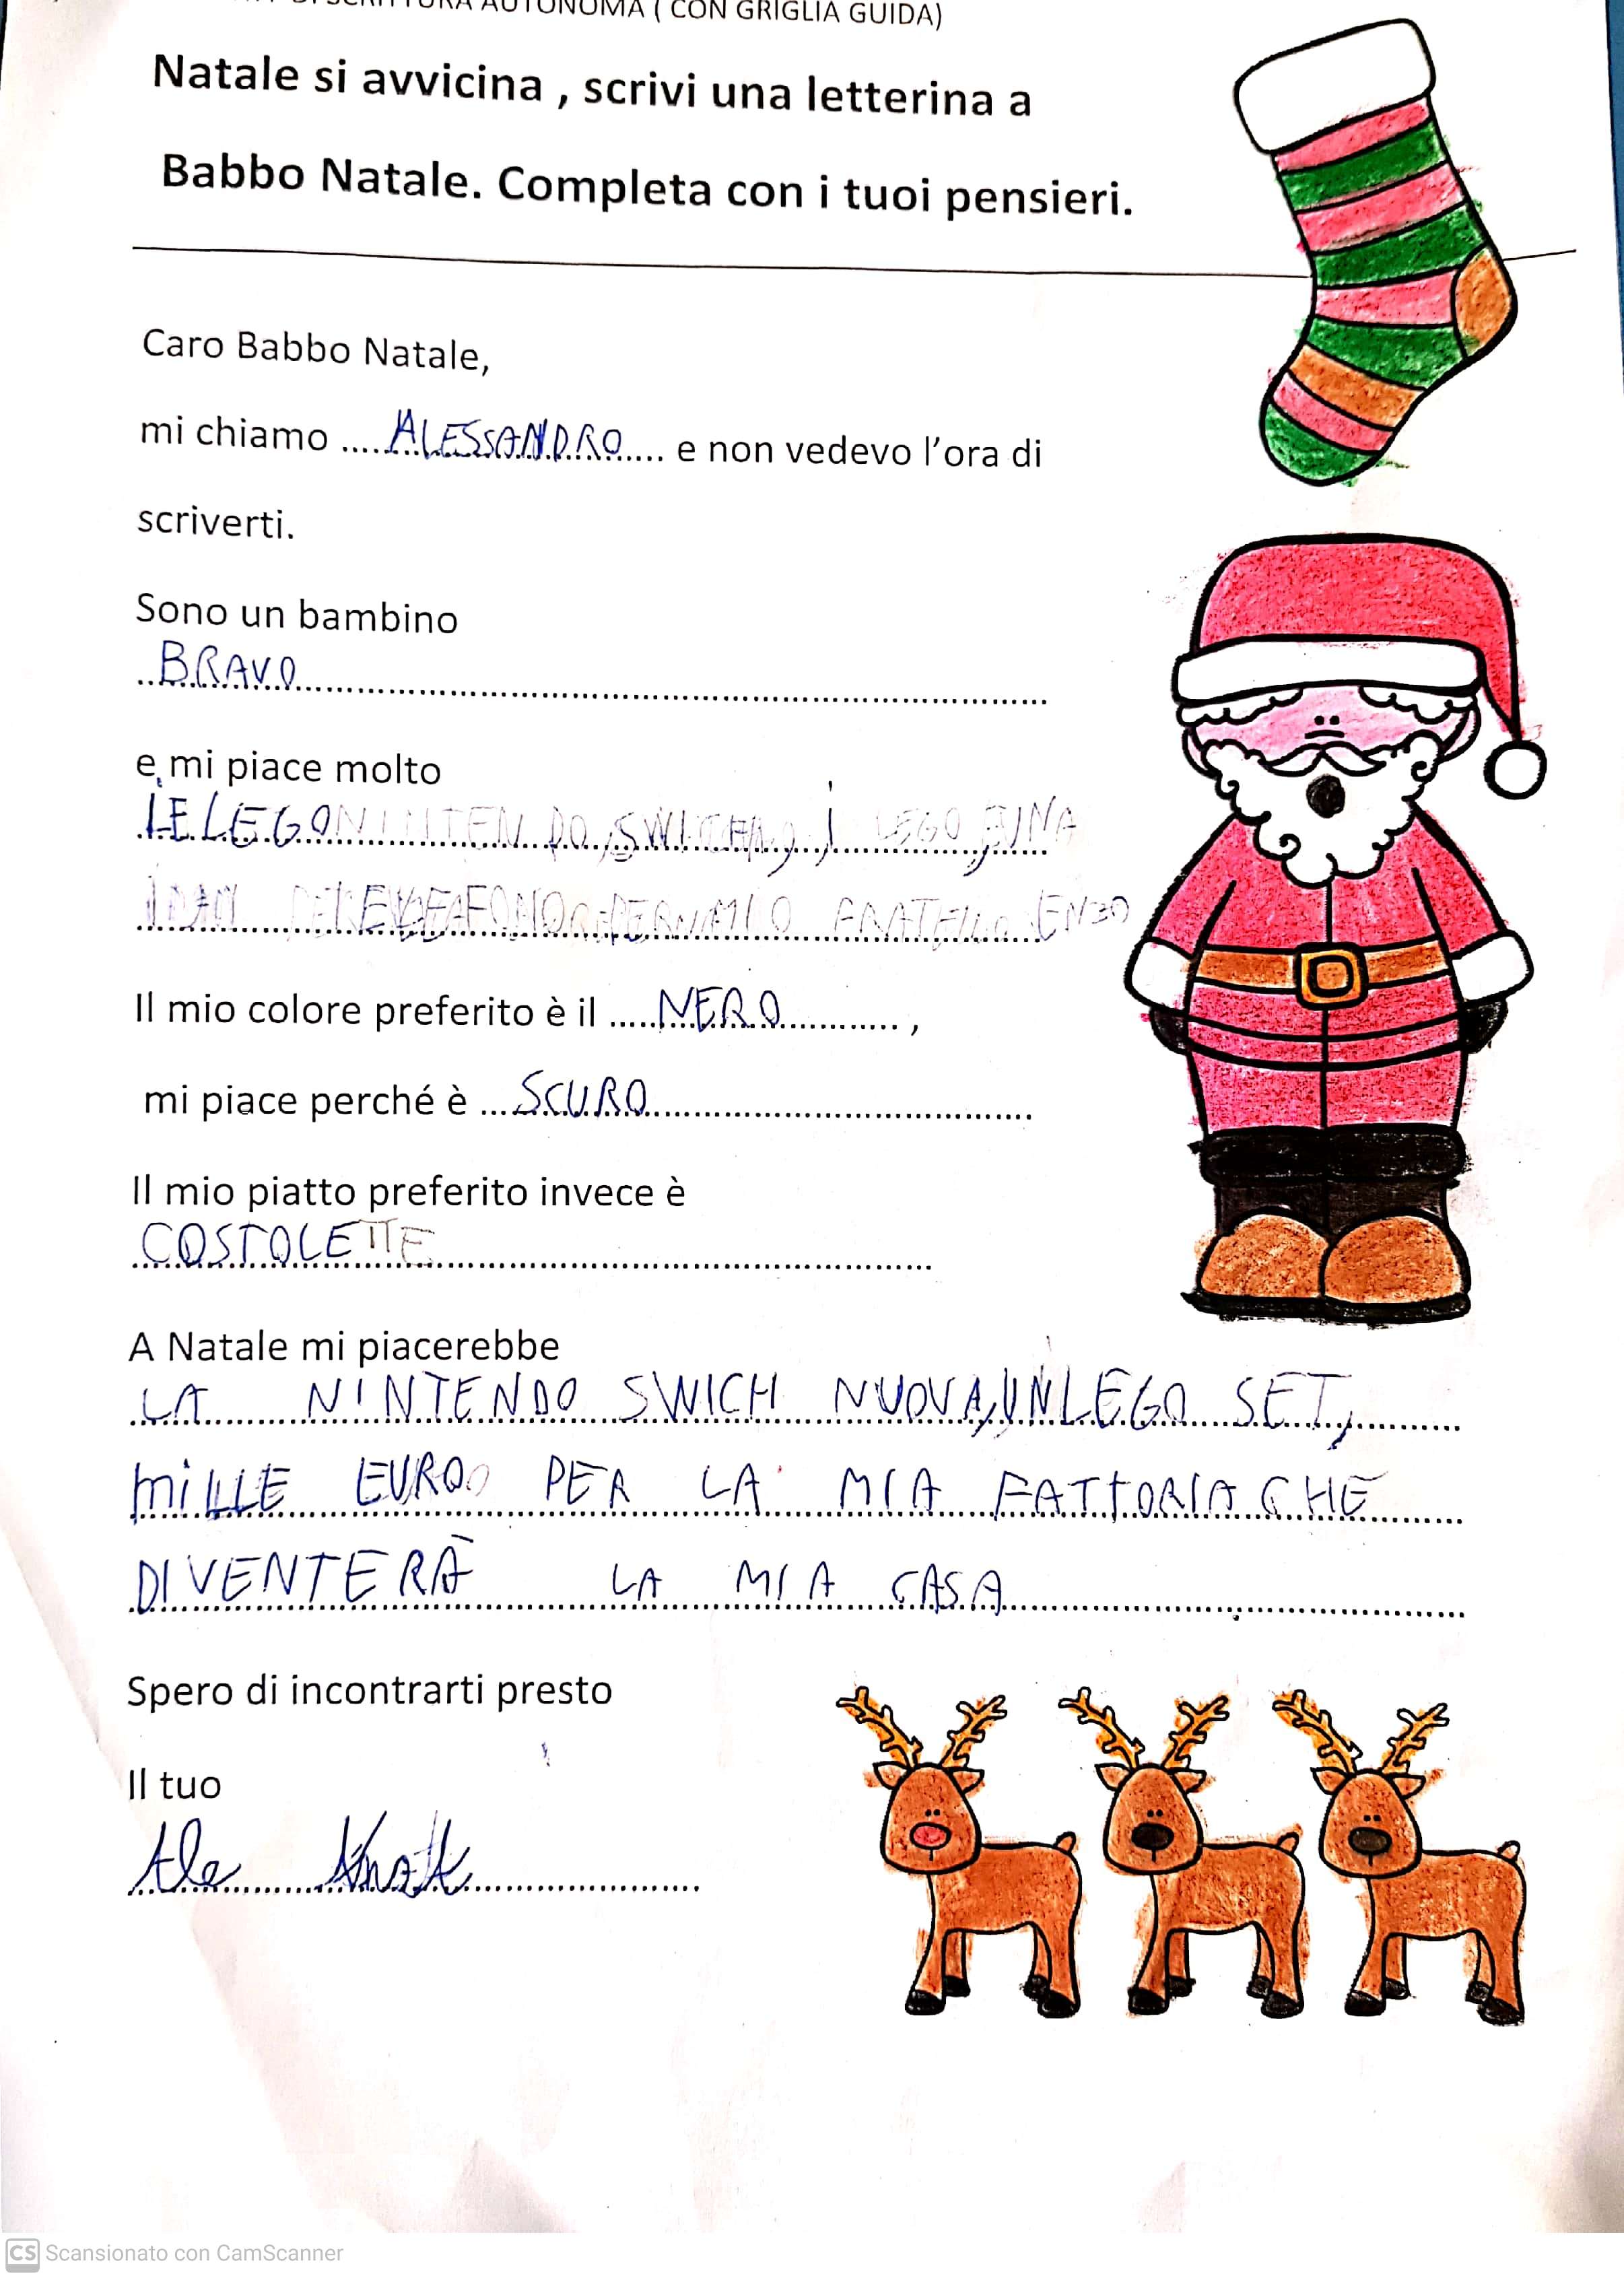 SCRITTURA AUTONOMA ( CON GRIGLIA GUIDA)
Natale si avvicina , scrivi una letterina a
Babbo Natale. Completa con i tuoi pensieri.
Caro Babbo Natale,
mi chiamo ....ALESSANDRO.... e non vedevo l'ora di
scriverti.
Sono un bambino
BRAVO
e mi piace molto
LE LEGO NINTENDO, SWICH, I LEGO, E UNA
PER MIO FRATELLO ENZO
Il mio colore preferito è il ..... NERO ..........,
mi piace perché è ... SCURO
Il mio piatto preferito invece è
COSTOLETTE
A Natale mi piacerebbe
LA NINTENDO SWICH NUOVA, UN LEGO SET,
MILLE EURO PER LA MIA FATTORIA CHE
DIVENTERÀ LA MIA CASA
Spero di incontrarti presto
Il tuo
Ale
CS Scansionato con CamScanner